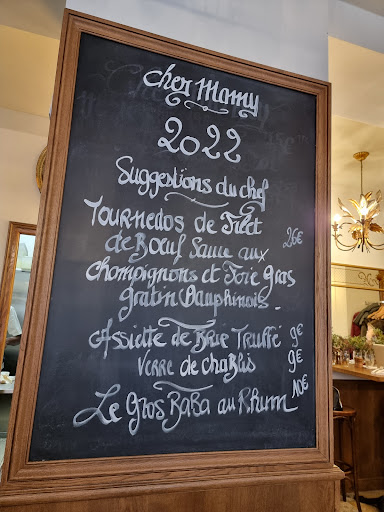 Chez Mamy
2022
Suggestions du chef
Tournedos de Filet
de Boeuf Sauce aux 26€
champignons et Foie Gras
gratin Dauphinois.
Assiette de Brie Truffé 9€
Verre de chablis 9€
Le Gros BaBa au Rhum 10€